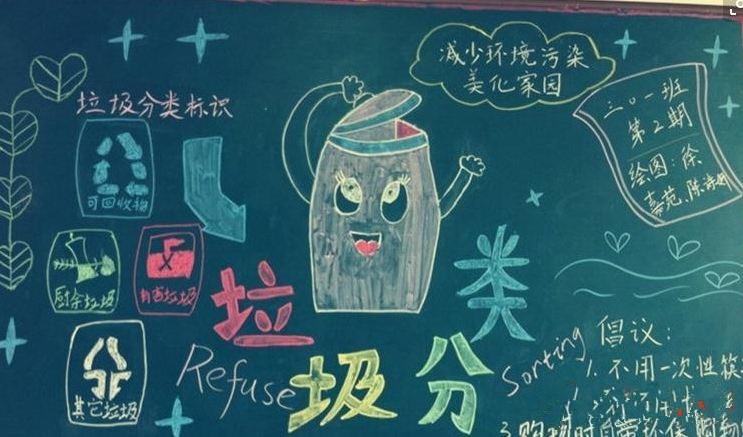 减少环境污染
美化家园
三〇一班
第2期
绘图：徐
嘉范、陈诗
垃圾分类标识
可回收物
厨余垃圾
有害垃圾
其它垃圾
垃圾分类
Refuse Sorting
倡议：
1. 不用一次性筷
3. 购物时自带环保购物